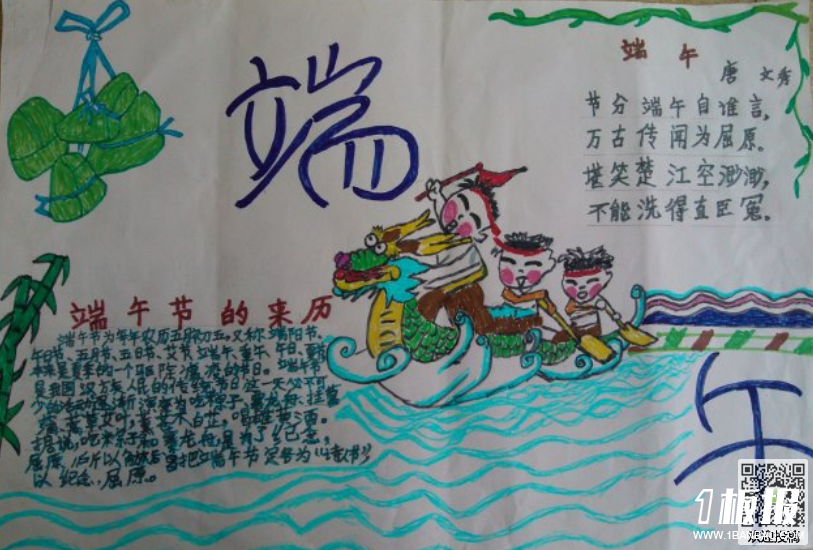 端
端午
唐 文秀
节分端午自谁言,
万古传闻为屈原。
堪笑楚江空渺渺,
不能洗得直臣冤。
端午节的来历
端午节为每年农历五月初五,又称端阳节、
午日节、五月节、五日节、艾节、端午、重午、午日、夏节
本来是夏季的一个驱除瘟疫的节日。端午节
是我国汉族人民的传统节日这一天必不可
少的活动逐渐演变为吃粽子、赛龙舟、挂菖
蒲、
喝雄黄酒。
据说,吃粽子和赛龙舟,是为了纪念
屈原,所以
把端午节定名为
以纪念屈原。
午
1板报
WWW.1BANBAO.COM
欢迎投稿